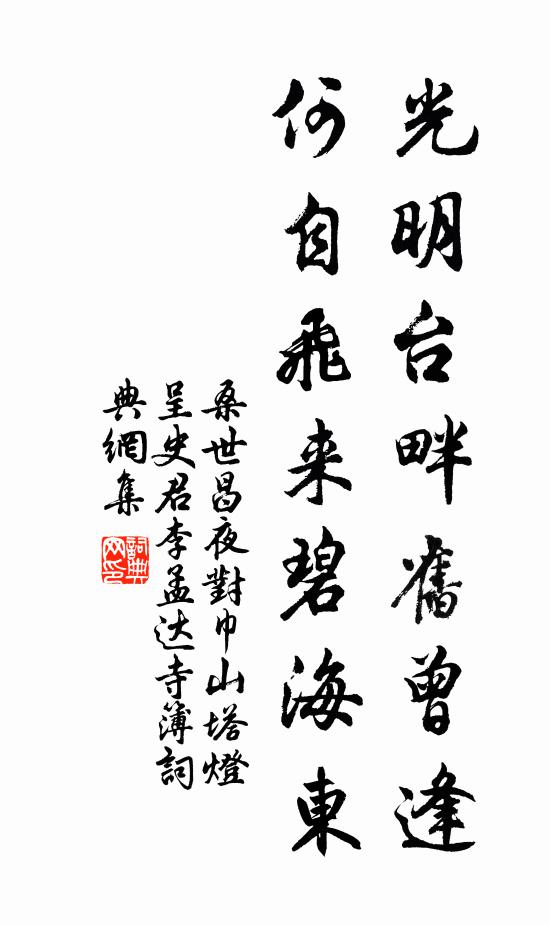 光明台畔舊曾逢
何自飛来碧海東
桑世昌夜對巾山塔燈
呈史君李孟达寺簿詞
典網集
詞典網印